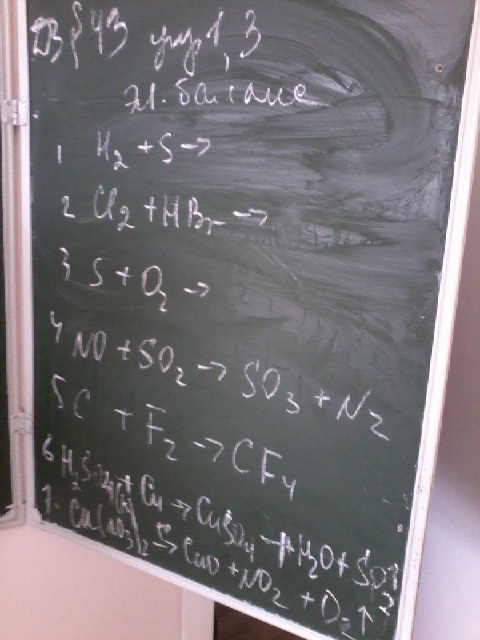 ДЗ §43 упр 1, 3
эл. баланс
1 H₂ + S →
2 Cl₂ + HBr →
3 S + O₂ →
4 NO + SO₂ → SO₃ + N₂
5 C + F₂ → CF₄
6 H₂SO₄ + Cu → CuSO₄ + H₂O + SO₂↑
7. Cu(NO₃)₂ → CuO + NO₂ + O₂↑